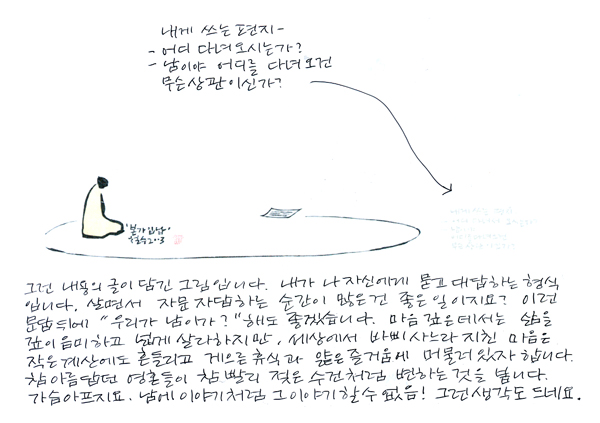 내게 쓰는 편지-
- 어디 다녀오시는가?
- 남이야 어디를 다녀오건
무슨상관이신가?
2003
그런 내용의 글이 담긴 그림입니다. 내가 나 자신에게 묻고 대답하는 형식
입니다. 살면서 자문자답하는 순간이 많은건 좋은 일이지요? 이런
문답 뒤에 "우리가 남이가?" 해도 좋겠습니다. 마음 깊은데서는 삶을
깊이 음미하고 넓게 살라하지만, 세상에서 바삐 사느라 지친 마음은
작은 계산에도 흔들리고 게으른 휴식과 얇은 즐거움에 머물러 있자 합니다.
참 아름답던 영혼들이 참 빨리 젖은 수건처럼 변하는 것을 봅니다.
가슴아프지요. 남에 이야기처럼 그 이야기 할 수 없음! 그런 생각도 드네요.